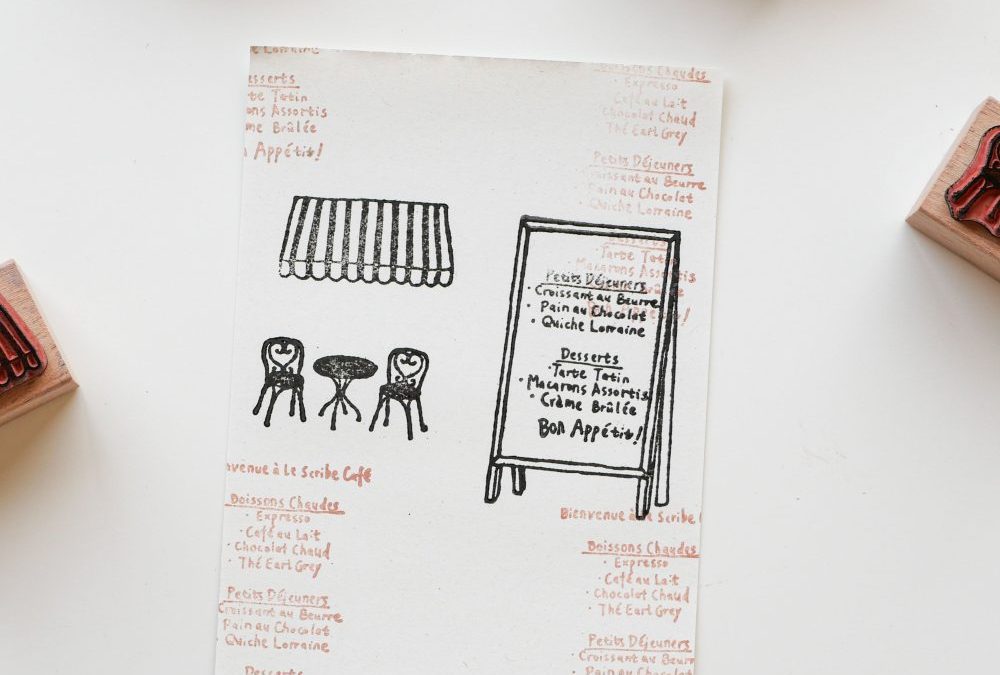 e Lorraine
esserts
te Tatin
ons Assortis
me Brûlée
Appétit!
Boissons Chaudes
· Expresso
Café au Lait
Chocolat Chaud
Thé Earl Grey
Petits Déjeuners
Croissant au Beurre
Pain au Chocolat
Quiche Lorraine
Desserts
Tarte Tatin
Macarons Assortis
Petits Déjeuners
· Croissant au Beurre
· Pain au Chocolat
· Quiche Lorraine
Desserts
· Tarte Tatin
· Macarons Assortis
· Crème Brûlée
Bon Appétit!
nvenue à Le Scribe Café
Boissons Chaudes
· Expresso
· Café au Lait
· Chocolat Chaud
· Thé Earl Grey
Petits Déjeuners
Croissant au Beurre
Pain au Chocolat
Quiche Lorraine
Desserts
Bienvenue à Le Scribe
Boissons Chaudes
· Expresso
· Café au Lait
· Chocolat Chaud
· Thé Earl Grey
Petits Déjeuners
· Croissant au Beurr
· Pain au Chocolat